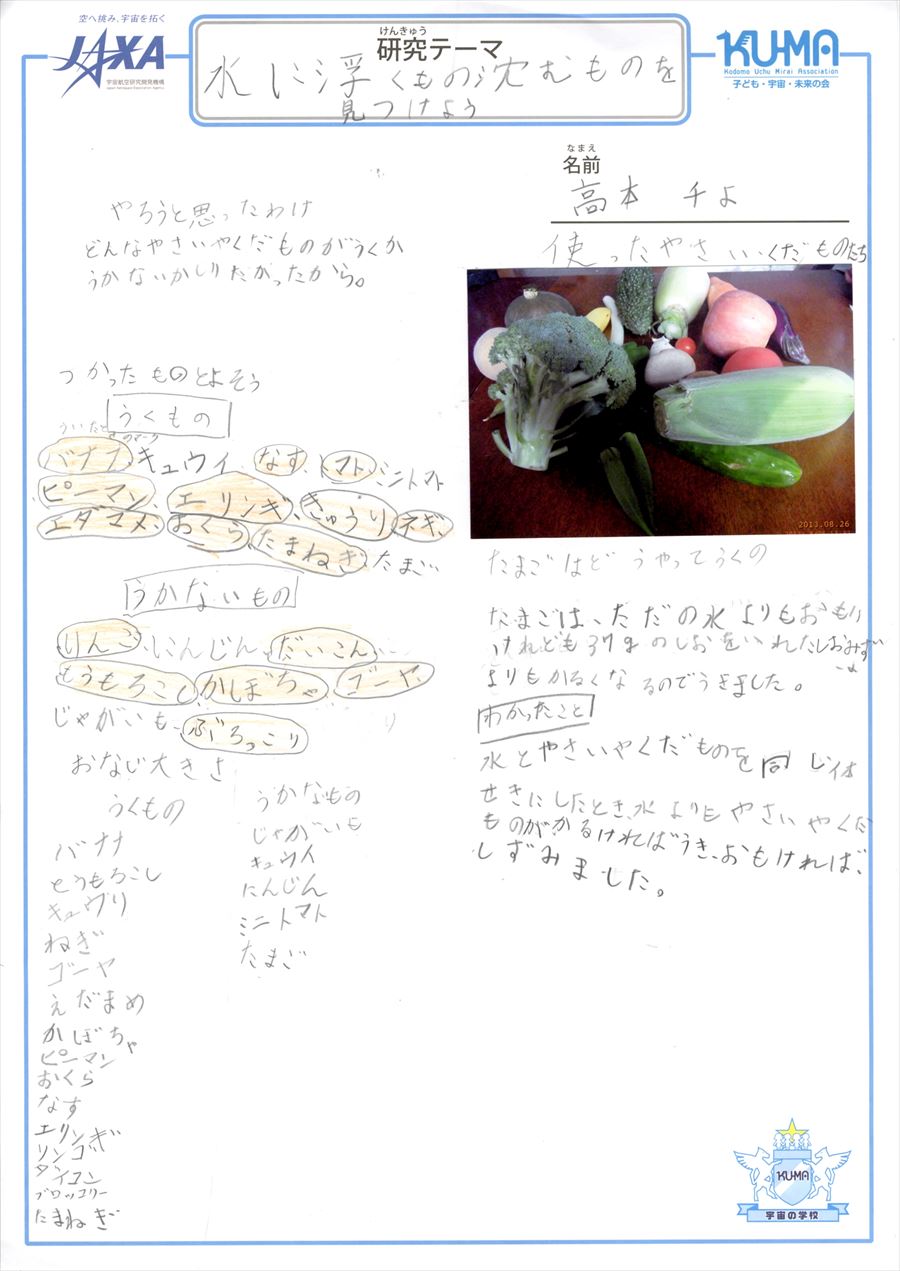 空へ挑み、宇宙を拓く
JAXA
宇宙航空研究開発機構
Japan Aerospace Exploration Agency
けんきゅう
研究テーマ
水に浮くもの沈むものを
見つけよう
KU-MA
Kodomo Uchu Mirai Association
子ども・宇宙・未来の会
なまえ
名前
高本 千よ
やろうと思ったわけ
どんなやさいやくだものがうくか
うかないかしりたかったから。
つかったものとよそう
うくもの
ういたときのマーク
バナナ、キュウイ、なす、トマト、ミニトマト
ピーマン、エリンギ、きゅうり、ネギ、
エダマメ、おくら、たまねぎ、たまご
うかないもの
りんご、にんじん、だいこん、
とうもろこし、かぼちゃ、ゴーヤ、
じゃがいも、ぶろっこり
おなじ大きさ
うくもの
バナナ
とうもろこし
キュウリ
ねぎ
ゴーヤ
えだまめ
かぼちゃ
ピーマン
おくら
なす
エリンギ
リンゴ
ダイコン
ブロッコリー
たまねぎ
うかなもの
じゃがいも
キュウイ
にんじん
ミニトマト
たまご
使ったやさい・くだものたち
2013.08.26
たまごはどうやってうくの
たまごは、ただの水よりもおもい
けれども37gのしおをいれたしおみず
よりもかるくなるのでうきました。
わかったこと
水とやさいやくだものを同じ体
せきにしたとき、水よりもやさいやくだ
ものがかるければうき、おもければ、
しずみました。
KU-MA
宇宙の学校